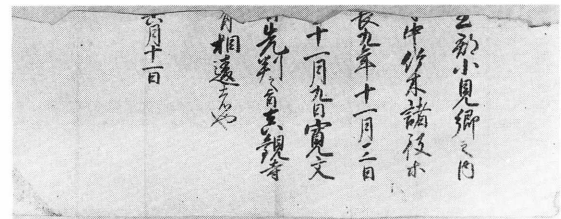 玉郡小見郷之内
中竹木諸役等
長九年十一月三日
十一月九日寛文
先判之旨真観寺
有相違者也
六月十一日